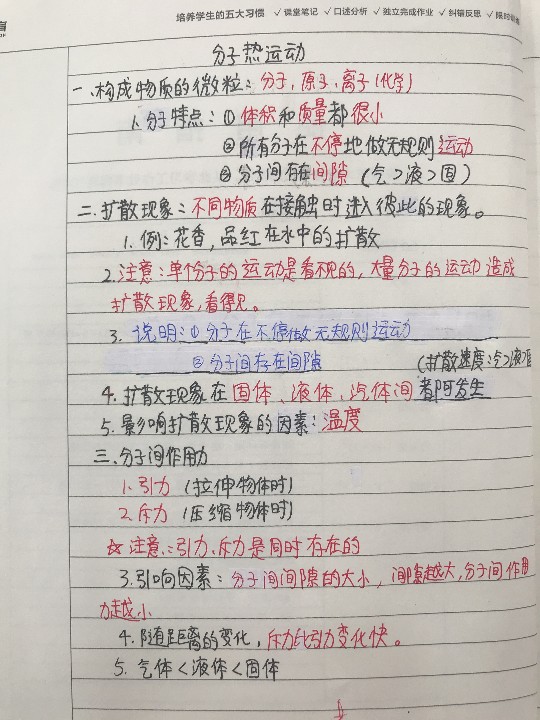 培养学生的五大习惯 ✓课堂笔记 ✓口述分析 ✓独立完成作业 ✓纠错反思 ✓限时
分子热运动
一、构成物质的微粒：分子，原子、离子（化学）
1、分子特点：① 体积和质量都很小
②所有分子在不停地做无规则运动
③分子间有在间隙（气>液>固）
二、扩散现象：不同物质在接触时进入彼此的现象。
1. 例：花香，品红在水中的扩散
2.注意：单个分子的运动是看不见的，大量分子的运动造成
扩散现象，看得见。
3. 说明：①分子在不停做无规则运动
②分子间存在间隙
（扩散速度：气>液>固
4. 扩散现象在固体、液体、汽体间都可发生
5. 影响扩散现象的因素：温度
三、分子间作用力
1.引力（拉伸物体时）
2.斥力（压缩物体时）
☆注意：引力、斥力是同时存在的
3.引响因素：分子间间隙的大小，间隙越大，分子间作用
力越小
4. 随距离的变化，斥力比引力变化快。
5. 气体<液体<固体